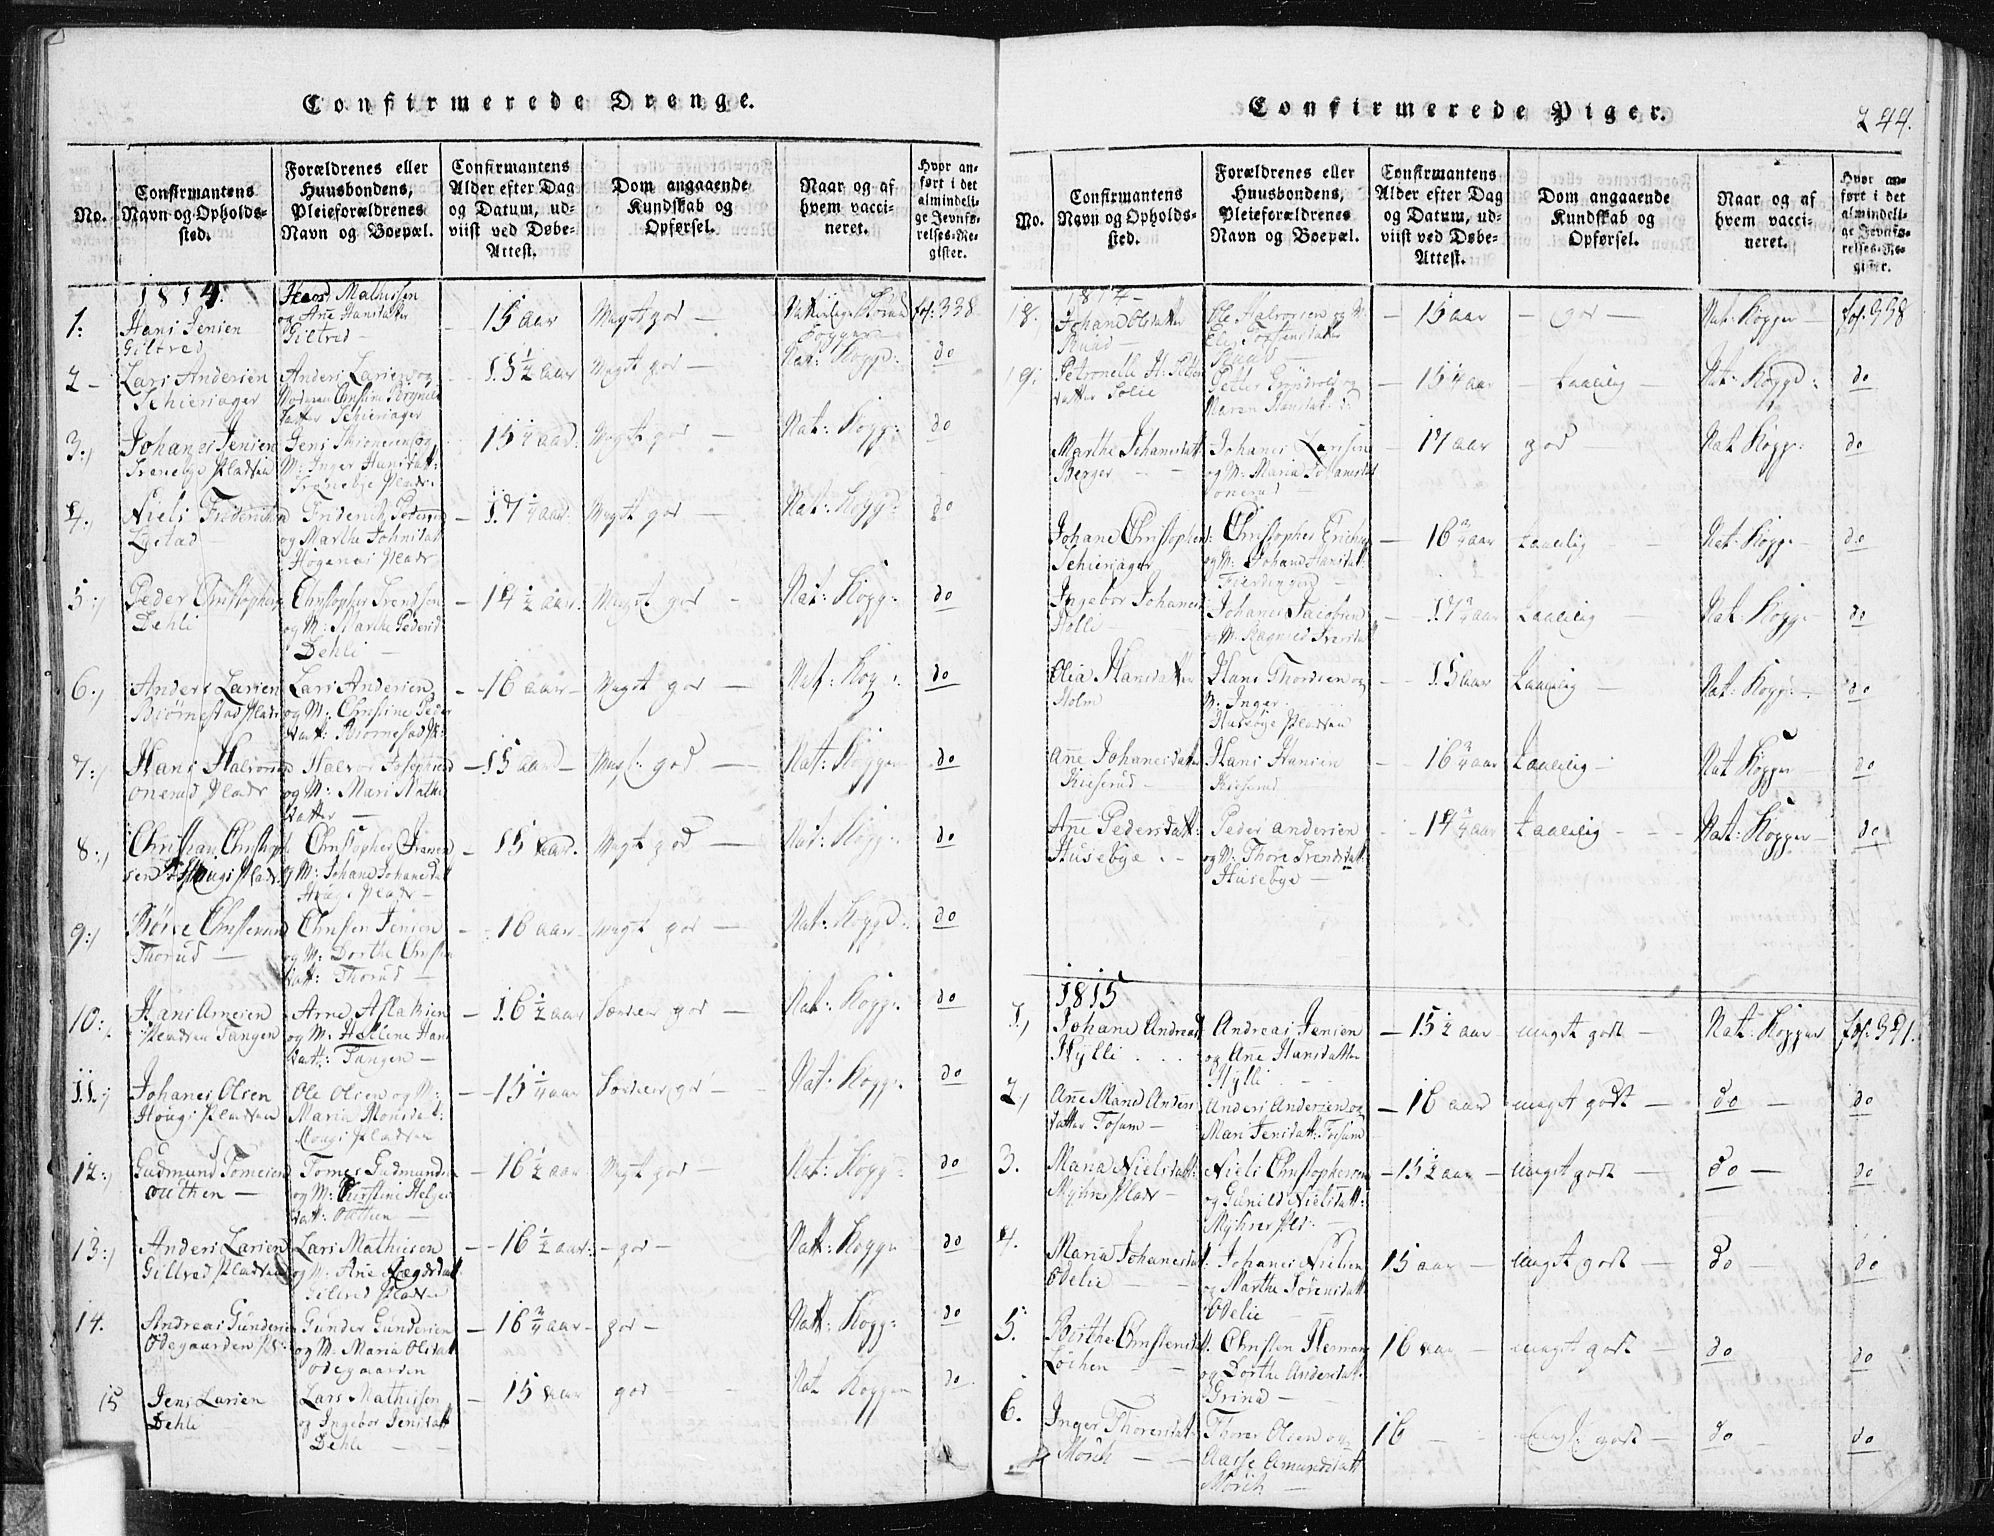 Confirmerede Drenge.
No.
Confirmantens
Navn og Opholds-
sted.
Forældrenes eller
Huusbondens,
Pleieforældrenes
Navn og Boepæl.
Confirmantens
Alder efter Dag
og Datum, ud-
viist ved Døbe-
Attest.
Dom angaaende
Kundskab og
Opførsel.
Naar og af
hvem vacci-
neret.
Hvor an-
ført i det
almindeli-
ge Jevnfø-
relses-Re-
gister.
1814.
1:
Hans Jensen
Giltred
Hans Mathissen
og Ane Hansdatter
Giltred
15 aar
Meget god
Naturlige
fol: 338
2
Lars Andersen
Schieriager
Anders Larsen og
Schieriager
15 1/2 aar
Meget god
Nat: Kopp:
do
3:/
Johanes Jensen
Jens
M: Inger Hansdatt:
15 1/4 aar
Meget god
Nat: Kopp:
do
4:/
Niels Frederiksen
Frederik Pedersen
og Marthe
17 1/4 aar
Meget god
Nat: Kopp:
do
5:/
Peder Christophers
Dehli
Christopher Trendsen
og M: Marthe Pedersd
Dehli
14 1/2 aar
Meget god
Nat: Kopp:
do
6:/
Anders Larsen
Biørnestad Plads
Lars Andersen
og M: Christine Peder
datt: Biørnestad Pl:
16 aar
Meget god
Nat: Kop:
do
7:/
Hans Halvorsen
onerud Plads
Halvor Josephsen
og M: Mari Mathi
datter
15 aar
god
Nat: Kopper
do
8:/
Christian Christoph
sen Hougs Plads
Christopher Iversen
og M: Johane Johanesdatt
Hougs Plads
15 aar
Meget god
Nat: Kopp:
do
9:/
Thorud
Christen Jensen
og M: Dorthe Christen
datt: Thorud
16 aar
Meget god
Nat: Kopp:
do
10:/
Hans Arnesen
Pladsen Tangen
Arne Aslaksen
og M: Hellene Hans
datt: Tangen
16 1/2 aar
god
Nat: Kopp:
do
11:/
Johanes Olsen
Hougs Pladsen
Ole Olsen og M:
Maria Monsdat:
Hougs Pladsen
15 1/4 aar
god
Nat: Kopp:
do
12:/
Gudmund Tomesen
outhen
Tomes Gudmundsen
og M: Kirstine Helges
datt: Outhen
16 1/2 aar
Meget god
Nat: Kopp:
do
13:/
Anders Larsen
Gillred Pladsen
Lars Mathiesen
og M: Ane
Gillred Pladsen
16 1/2 aar
god
Natt: Koppe
do
14.
Andreas Gundersen
Odegaarden Pl:
Gunder Gundersen
og M: Maria Olsdat
odegaarden
16 3/4 aar
god
Natt: Kopp:
do
15
Jens Larsen
Dehli
Lars Mathissen
og Ingebor Jensdatt
Dehli
15 aar
god
Nat Kopper
do
Confirmerede Piger.
244.
No.
Confirmantens
Navn og Opholds-
sted.
Forældrenes eller
Huusbondens,
Pleieforældrenes
Navn og Boepæl.
Confirmantens
Alder efter Dag
og Datum, ud-
viist ved Døbe-
Attest.
Dom angaaende
Kundskab og
Opførsel.
Naar og af
hvem vacci-
neret.
Hvor an-
ført i det
almindeli-
ge Jevnfø-
relses-Re-
gister.
1814
18.
Johane Olsdatter
Ole Halvorsen og M
15 aar
god
Nat: Kopper
fol. 338
19:
Petronelle
datter Solie
Petter og
Maren Hansdat:
15 1/4 aar
taalelig
Nat: Kopp:
do
Marthe Johanesdatt
Berger
Johanes Larssen
og M: Maria Johanesdat
onerud
17 aar
god
Nat Kopp:
do
Johane Christophers
Schieriager
Christopher
og M: Johane Hansdatt
16 3/4 aar
taalelig
Nat: Kopp:
do
Ingebor Johanes
Johanes Jacobsen
17 3/4 aar
taalelig
Nat: Kopp:
do
Olia Hansdatter
Holm
Hans Thordsen og
M: Inger
Husebye Pladsen
15 aar
taalelig
Nat: Kopp:
do
Ane Johanesdatter
Kieserud
Hans Hansen
Kieserud
16 3/4 aar
taalelig
Nat Kopper
do
Ane Pedersdatt:
Husebye
Peder andersen
og M: Thore Trendsdatt
Husebye
14 3/4 aar
taalelig
Nat: Kopper
do
1815
1,
Johane Andreasd
Hylli
Andreas Jensen
og Ane Hansdatter
Hylli
15 1/2 aar
meget godt
Nat: Kopper
fol. 391.
2,
Ane Maria Anders
datter Tosum
Anders Andersen og
Mari Jensdatt: Tosum
16 aar
meget godt
do
do
3.
Maria Nielsdatt:
Myhrer Plads
Niels Christophersen
og Gunild Nielsdatt:
Myhrer Pld:
15 1/2 aar
meget godt
do
do
4.
Maria Johanesdat
Odelie
Johanes Nielsen
og Marthe Sørensdatt
Odelie
15 aar
meget godt
do
do
5.
Birthe Christensd
Løchen
Christen Herman
og Dorthe Andersdatt:
Grind
16 aar
meget godt
do
do
6.
Inger Thoresdatt:
Mörch
Thores Olsen og
Aasse Amundsdatt
Mörch
16
godt
do
do